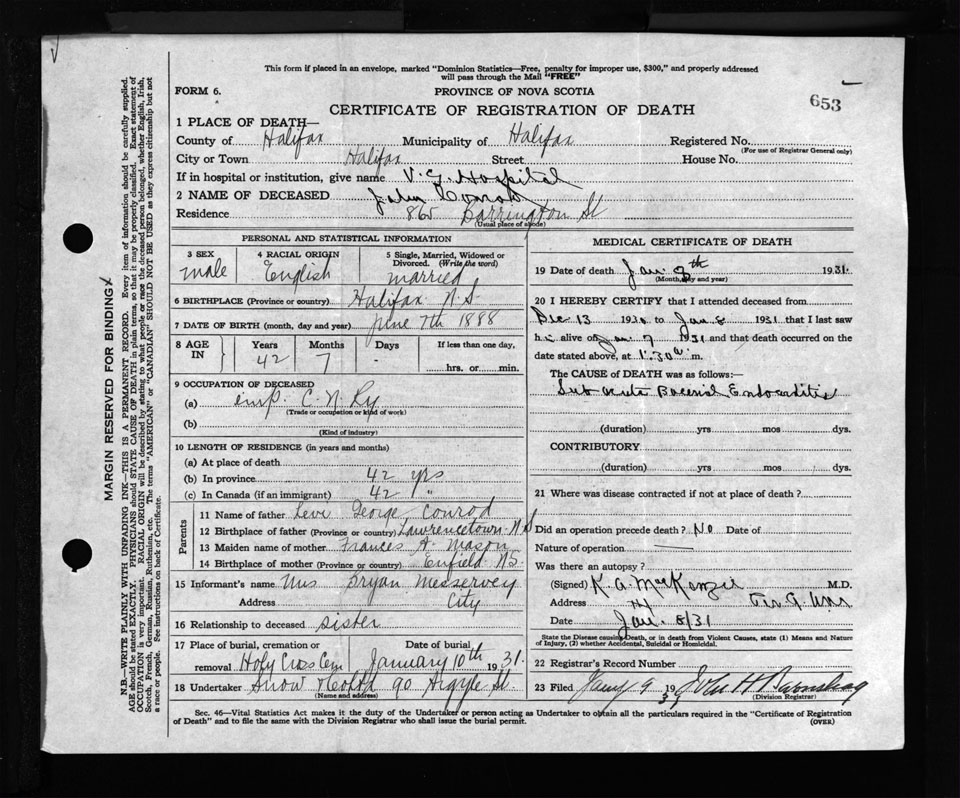 This form if placed in an envelope, marked "Dominion Statistics—Free, penalty for improper use, $300," and properly addressed
will pass through the Mail "FREE"
FORM 6.
PROVINCE OF NOVA SCOTIA
653
CERTIFICATE OF REGISTRATION OF DEATH
1 PLACE OF DEATH—
County of Halifax Municipality of Halifax Registered No.
(For use of Registrar General only)
City or Town Halifax Street House No.
If in hospital or institution, give name V. G. Hospital
2 NAME OF DECEASED John Conrod
Residence 865 Barrington St
(Usual place of abode)
PERSONAL AND STATISTICAL INFORMATION
3 SEX
male
4 RACIAL ORIGIN
English
5 Single, Married, Widowed or
Divorced. (Write the word)
married
6 BIRTHPLACE (Province or country) Halifax N.S.
7 DATE OF BIRTH (month, day and year) June 7th 1888
8 AGE IN
Years Months Days If less than one day,
42 7 - hrs. or min.
9 OCCUPATION OF DECEASED
(a) emp. C. N. Ry
(Trade or occupation or kind of work)
(b)
(Kind of industry)
10 LENGTH OF RESIDENCE (in years and months)
(a) At place of death
(b) In province 42 yrs
(c) In Canada (if an immigrant) 42 "
Parents
11 Name of father Levi George Conrod
12 Birthplace of father (Province or country) Lawrencetown N.S
13 Maiden name of mother Frances A. Mason
14 Birthplace of mother (Province or country) Enfield N.S.
15 Informant's name Mrs Bryan Messervey
Address City
16 Relationship to deceased sister
17 Place of burial, cremation or Date of burial,
removal Holy Cross Cem January 10th 1931.
18 Undertaker Snow & Co Ltd 90 Argyle St.
(Name and address)
MEDICAL CERTIFICATE OF DEATH
19 Date of death Jan. 8th 1931.
(Month, day and year)
20 I HEREBY CERTIFY that I attended deceased from
Dec 13 1930 to Jan 8 1931 that I last saw
h im alive on Jan 7 1931 and that death occurred on the
date stated above, at 1.30 a. m.
The CAUSE of DEATH was as follows:—
Sub acute Bacterial Endocarditis
(duration) yrs mos dys.
CONTRIBUTORY
(duration) yrs. mos. dys.
21 Where was disease contracted if not at place of death?
Did an operation precede death? No Date of
Nature of operation —
Was there an autopsy?
(Signed) K. A. MacKenzie M.D.
Address
Date Jan. 8/31
State the Disease causing Death, or in death from Violent Causes, state (1) Means and Nature
of Injury, (2) whether Accidental, Suicidal or Homicidal.
22 Registrar's Record Number
23 Filed Jany 9 1931 John H
(Division Registrar)
Sec. 46—Vital Statistics Act makes it the duty of the Undertaker or person acting as Undertaker to obtain all the particulars required in the "Certificate of Registration
of Death" and to file the same with the Division Registrar who shall issue the burial permit.
(OVER)
MARGIN RESERVED FOR BINDING
N.B.—WRITE PLAINLY WITH UNFADING INK—THIS IS A PERMANENT RECORD. Every item of information should be carefully supplied.
AGE should be stated EXACTLY. PHYSICIANS should STATE CAUSE OF DEATH in plain terms, so that it may be properly classified. Exact statement of
OCCUPATION is very important. RACIAL ORIGIN will be described by stating to what people or race the deceased person belonged, whether English, Irish,
Scotch, French, German, Russian, Ruthenian, etc. The terms "AMERICAN" or "CANADIAN" SHOULD NOT BE USED as they express citizenship but not
a race or people. See instructions on back of Certificate.